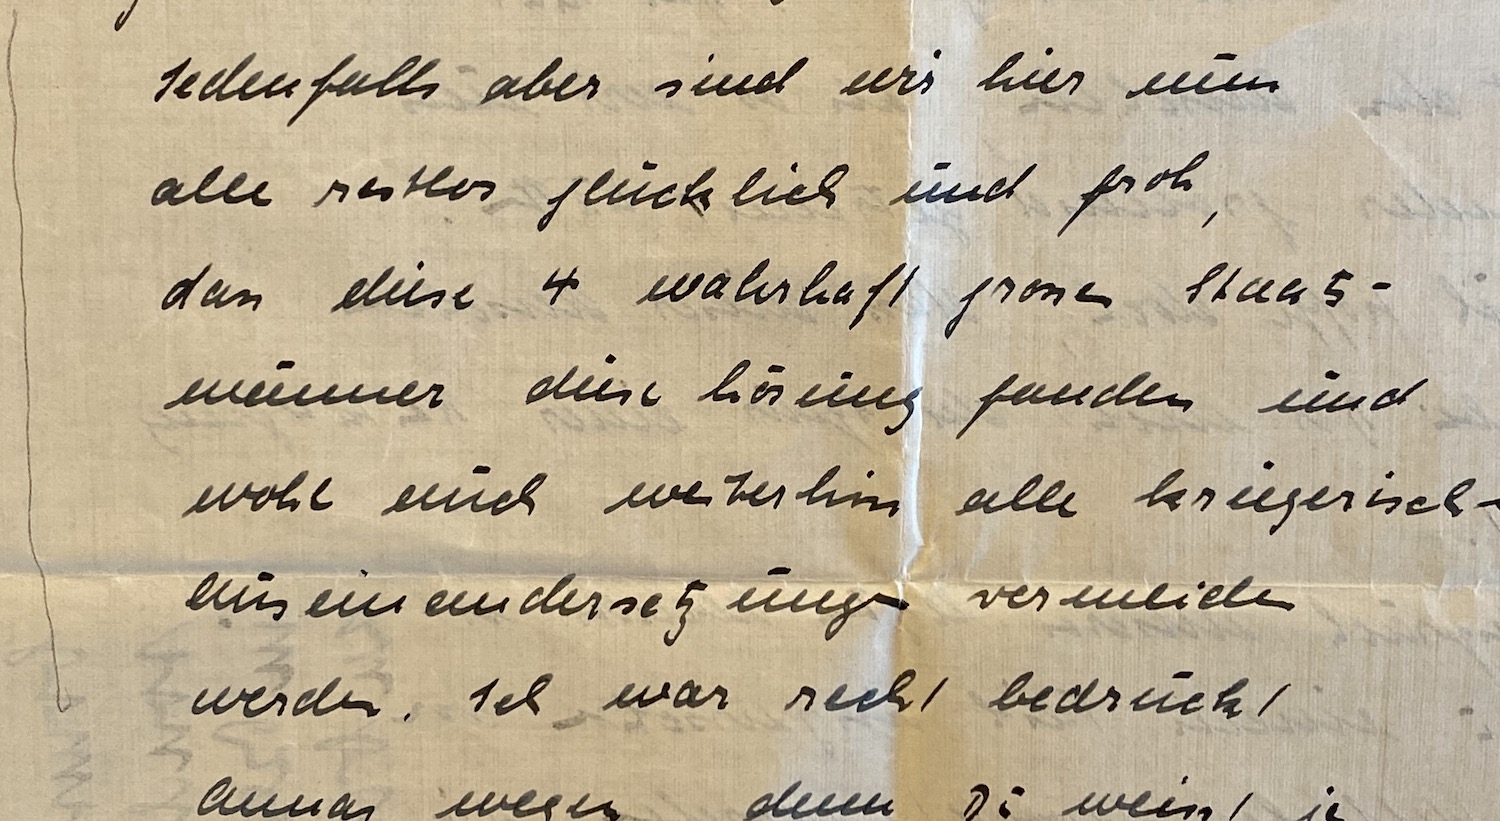 Jedenfalls aber sind wir hier nun
alle restlos glücklich und froh,
dass diese 4 wahrhaft grossen Staats-
männer diese Lösung fanden und
wohl auch weiterhin alle kriegerisch-
Auseinandersetzungen vermeiden
werden. Ich war recht bedrückt
Annas wegen denn Du weisst ja